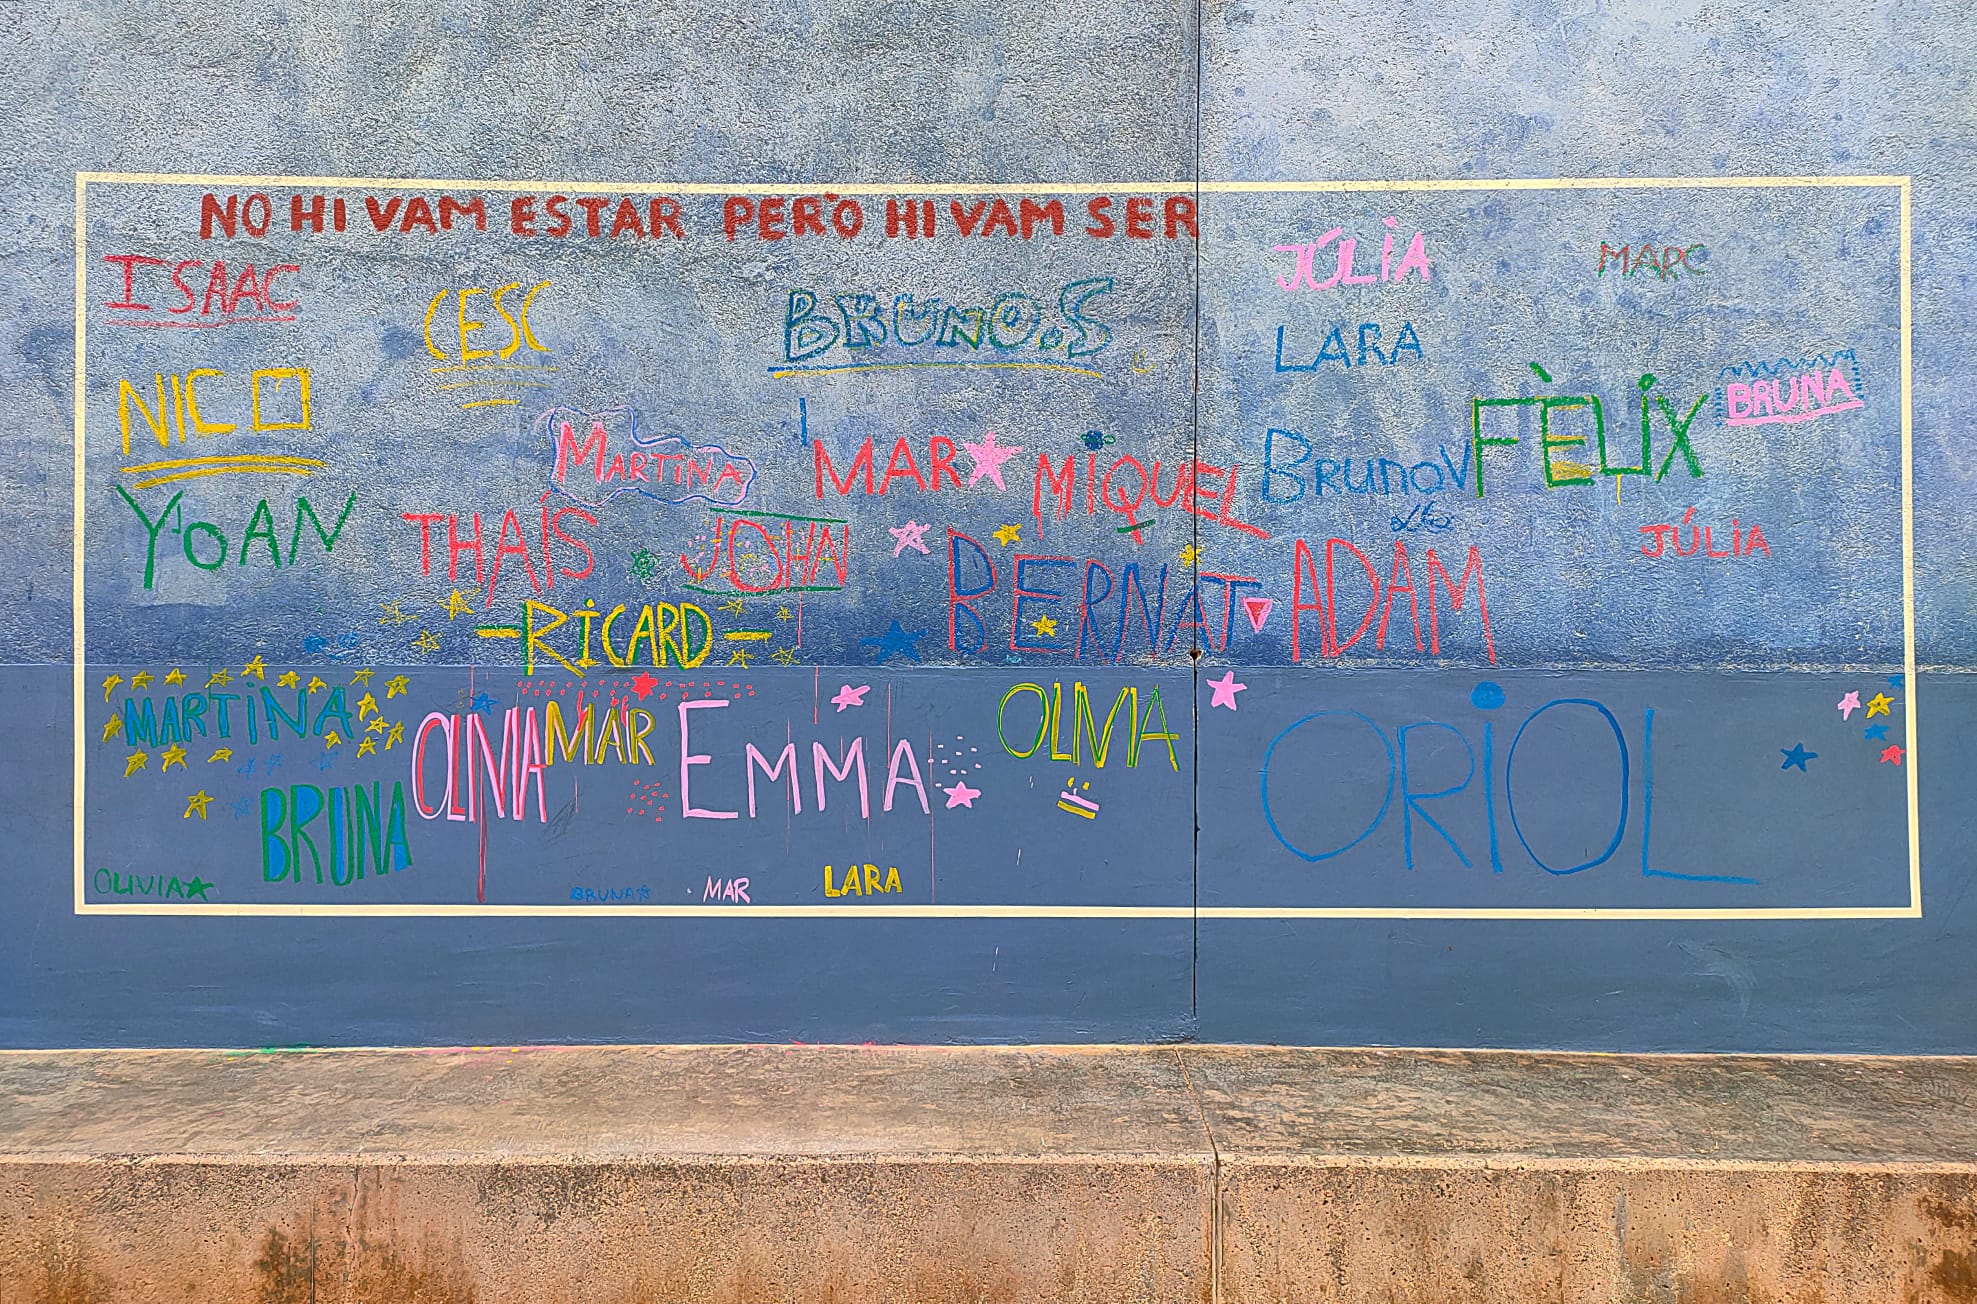 NO HI VAM ESTAR PERÒ HI VAM SER
ISAAC
CESC
BRUNO.S
JÚLIA
MARC
LARA
NICO
BRUNA
FÈLIX
MARTINA
MAR
MIQUEL
BRUNOV
YOAN
THAÍS
JOHN
BERNAT
ADAM
JÚLIA
RICARD
MARTINA
OLIVIA
MAR
EMMA
OLIVIA
ORIOL
BRUNA
OLIVIA
BRUNA
MAR
LARA